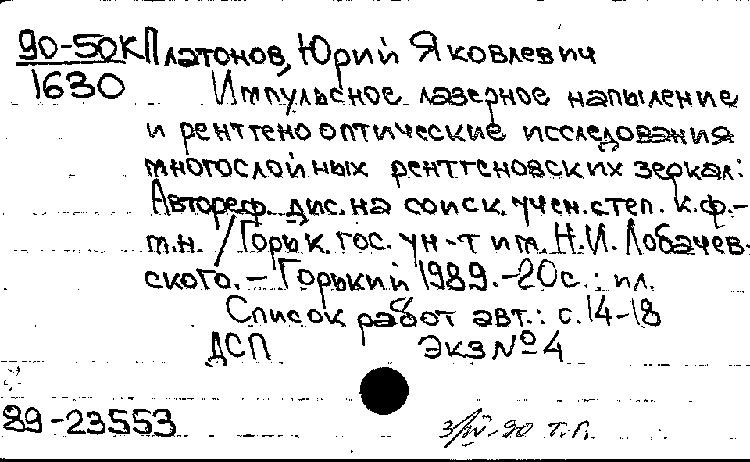 90-50К Платонов, Юрий Яковлевич
1630 Импульсное лазерное напыление
и рентгенооптические исследования
многослойных рентгеновских зеркал:
Автореф. дис. на соиск. учен. степ. к.ф.-
м.н. / Горьк. гос. ун-т им. Н.И. Лобачев-
ского. – Горький 1989. – 20с.: ил.
Список работ авт.: с.14-18
ДСП Экз № 4
89-23553
3/IV-90 Т.Г.